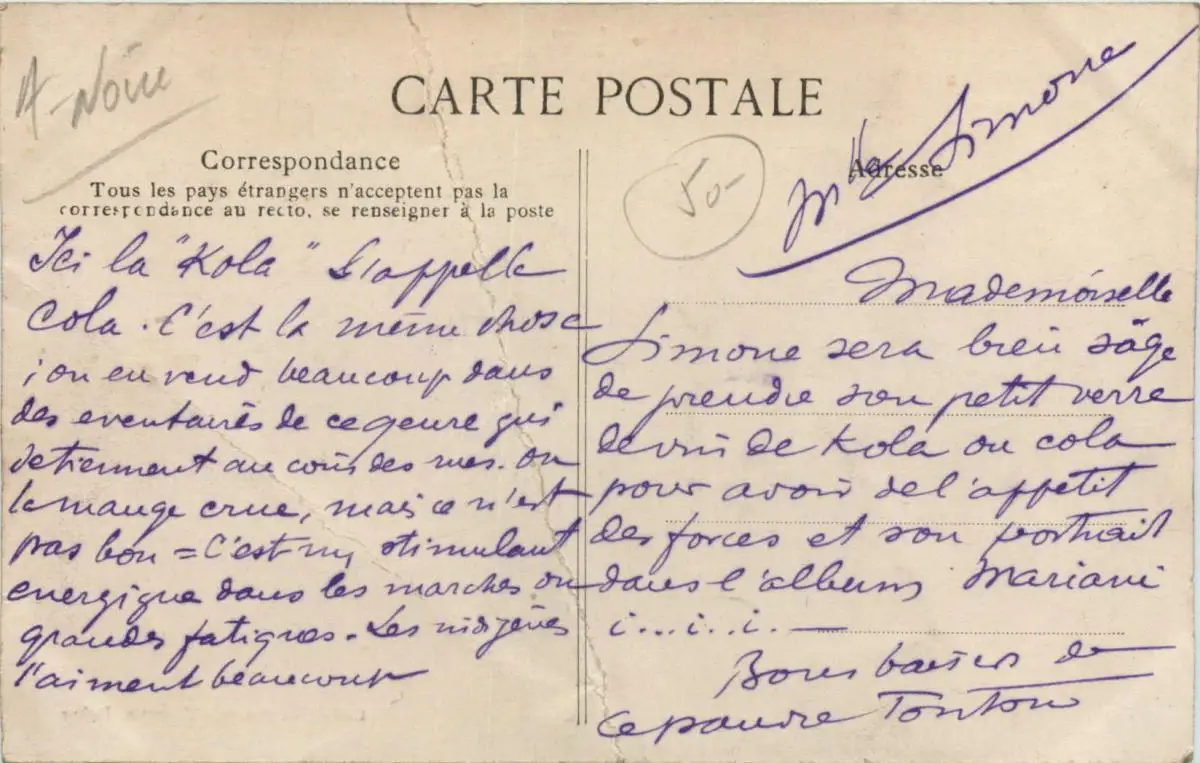 A. Noire
CARTE POSTALE
Correspondance
Tous les pays étrangers n'acceptent pas la
correspondance au recto, se renseigner à la poste
Ici la "Kola" s'appelle
Cola. C'est la même chose
; on en vend beaucoup dans
des eventaires de ce genre qui
se tiennent au coin des rues. on
la mange crue, mais ce n'est
pas bon = C'est un stimulant
energique dans les marches ou
grandes fatigues. Les indigènes
l'aiment beaucoup
50-
Adresse
Mlle Simone
Mademoiselle
Simone sera bien sâge
de prendre son petit verre
de vin de Kola ou cola
pour avoir de l'appetit
des forces et son portrait
dans l'album Mariani
i...i..i.—
Bons baisers de
ce pauvre Tonton